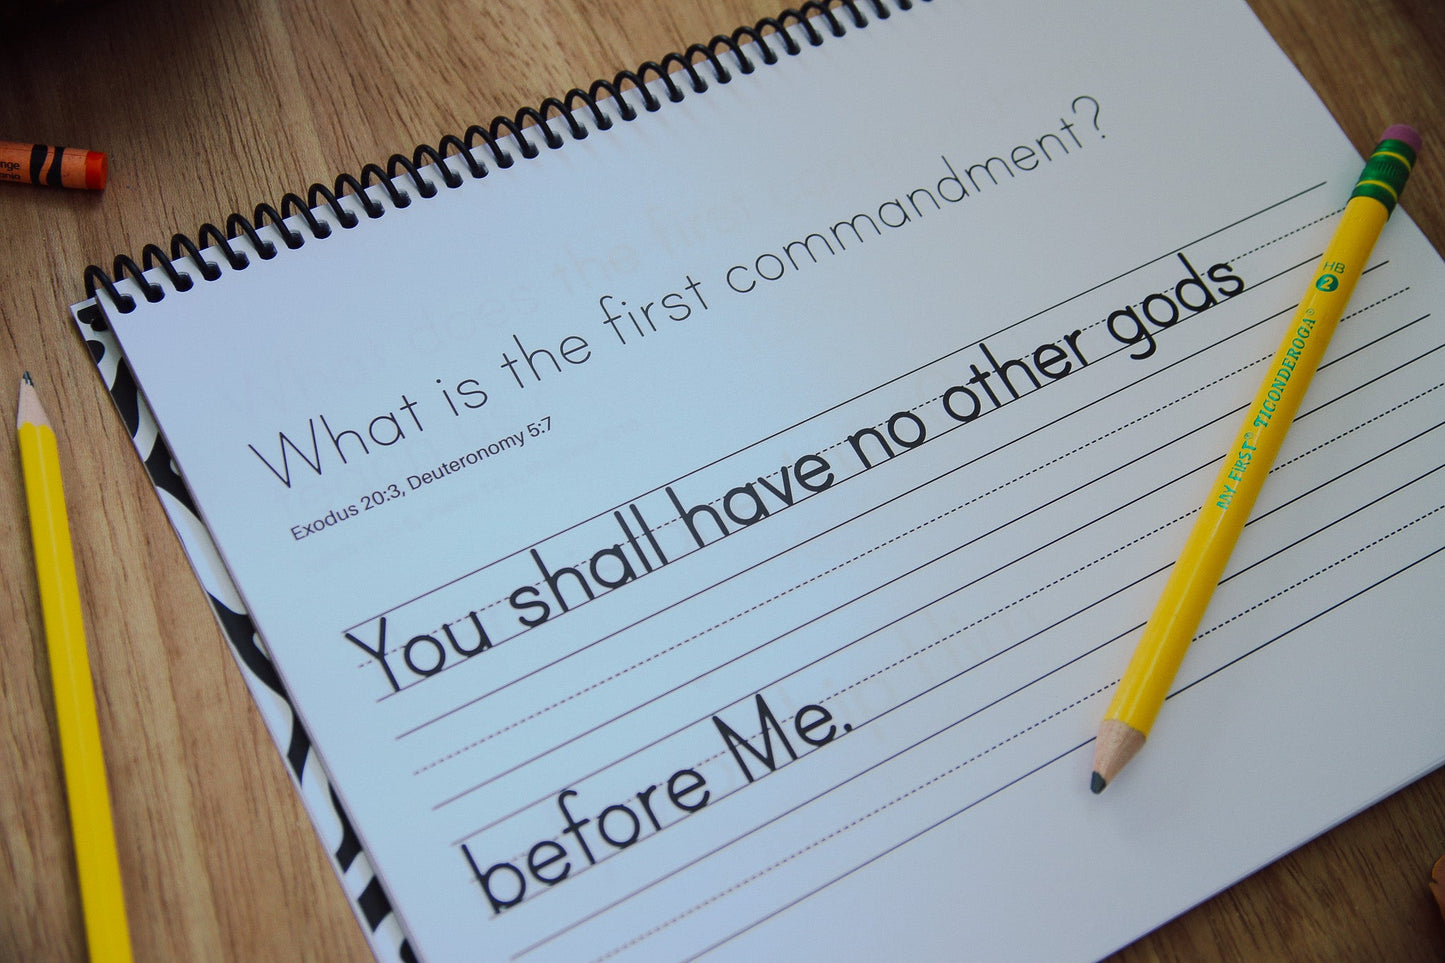 What is the first commandment?
Exodus 20:3, Deuteronomy 5:7
You shall have no other gods
before Me.
HB
2
MY FIRST® TICONDEROGA®